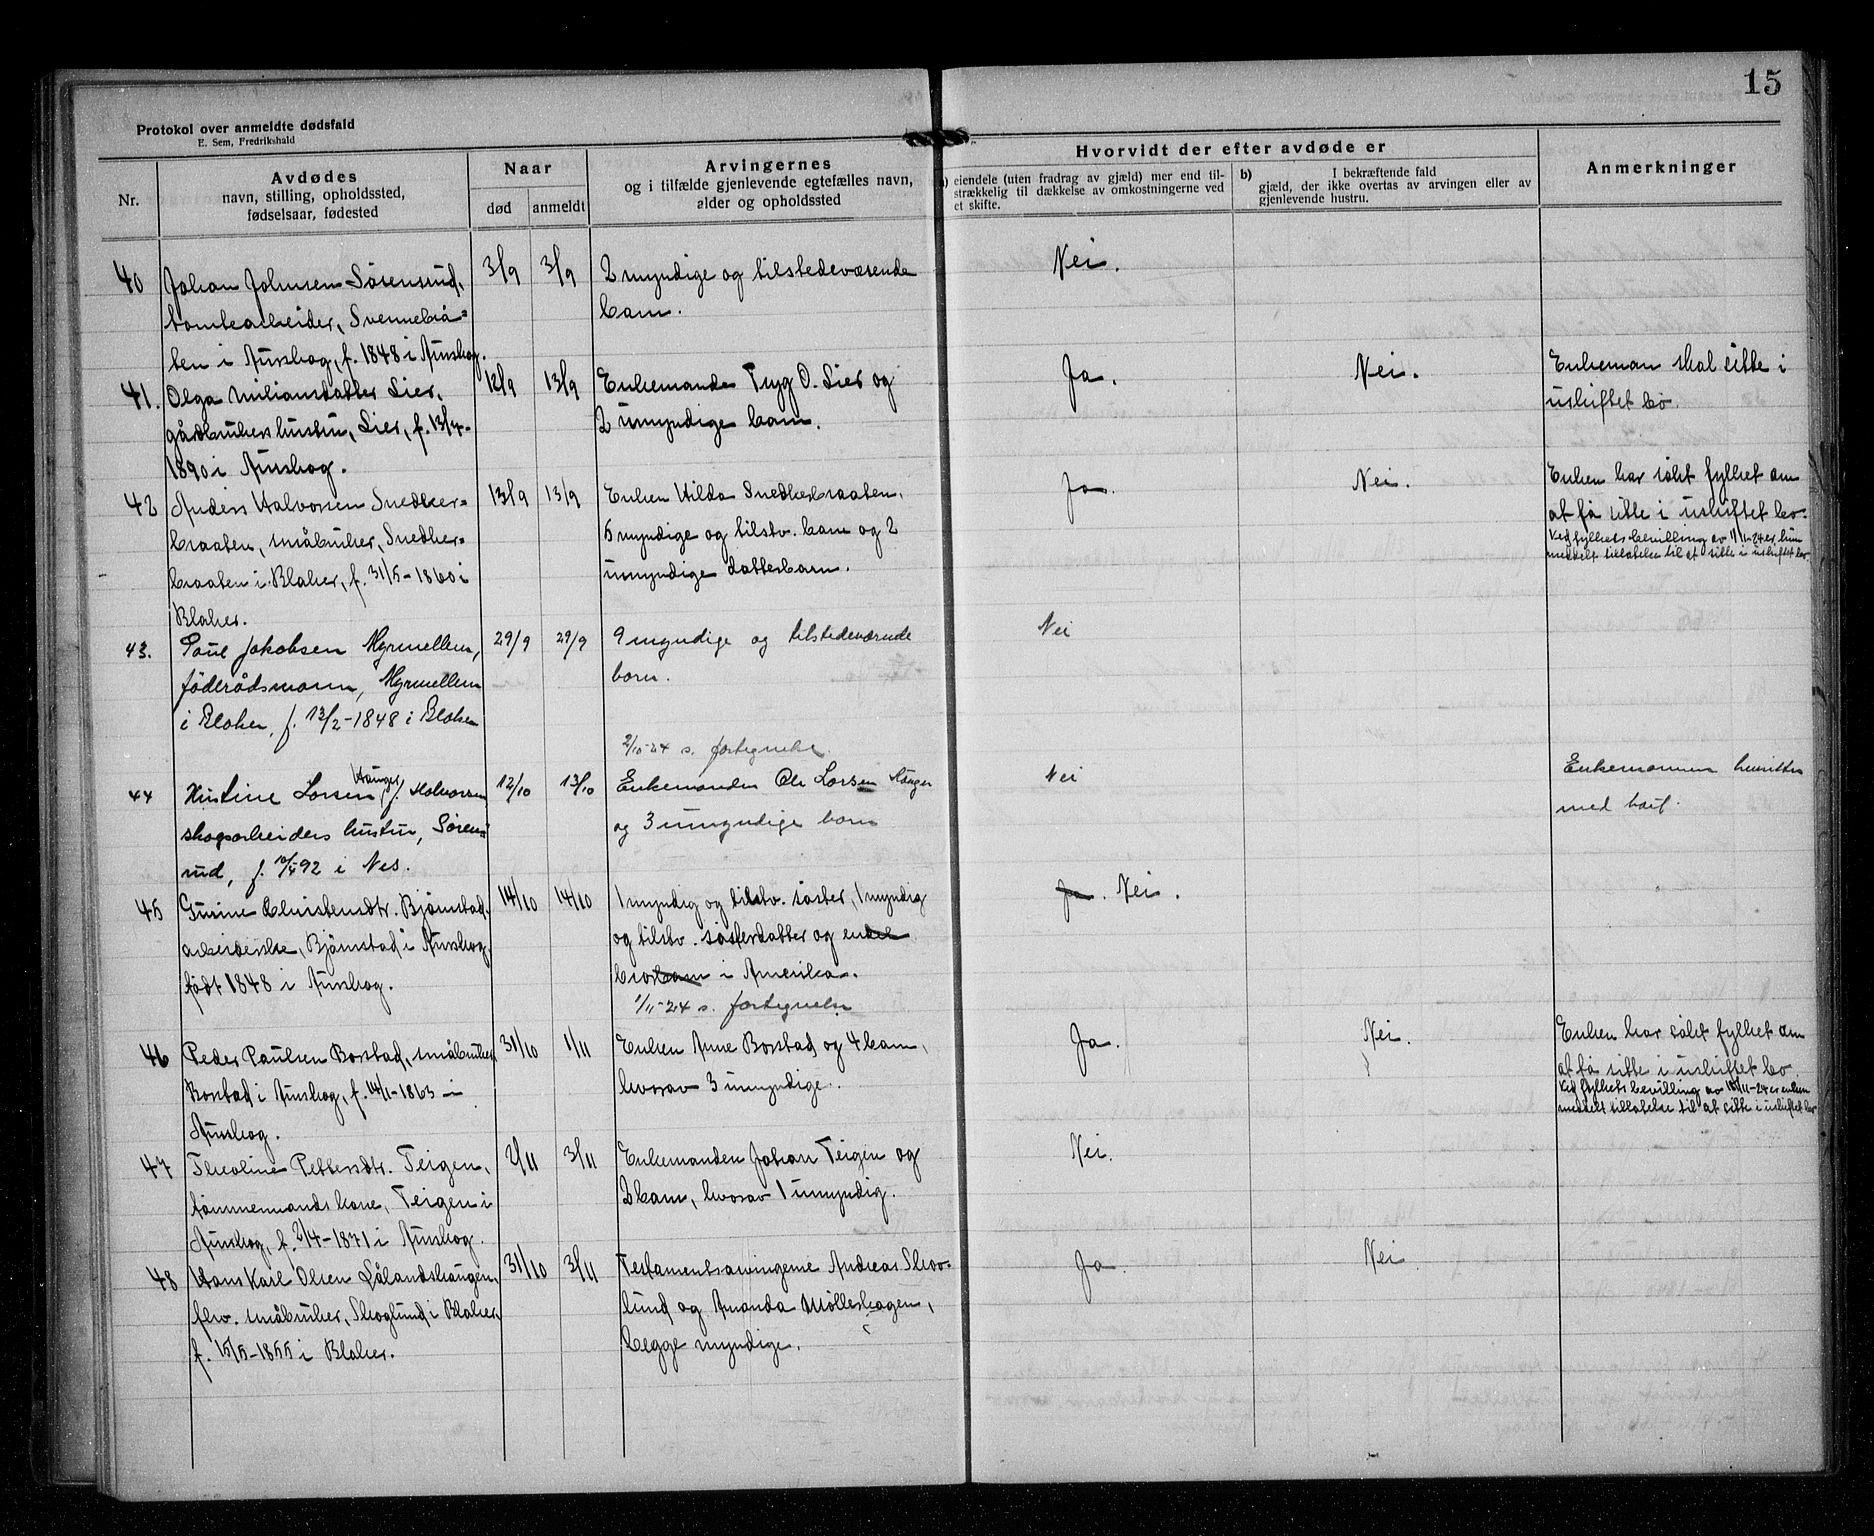 15
Protokol over anmeldte dødsfald
E. Sem, Fredrikshald
Nr.
Avdødes
navn, stilling, opholdssted,
fødselsaar, fødested
Naar
død
anmeldt
Arvingernes
og i tilfælde gjenlevende egtefælles navn,
alder og opholdssted
Hvorvidt der efter avdøde er
a) eiendele (uten fradrag av gjæld) mer end til-
strækkelig til dækkelse av omkostningerne ved
et skifte.
b) I bekræftende fald
gjæld, der ikke overtas av arvingen eller av
gjenlevende hustru.
Anmerkninger
40 Johan Johnsen Sörensrud, 3/9 3/9 2 myndige og tilstedeværende Nei.
tomtearbeider, Svennebrå= barn.
ten i Aurskog, f. 1848 i Aurskog.
41. Olga Miliansdatter Lier, 12/9 13/9 Enkemande Tryg O. Lier og Ja. Nei. Enkeman skal sitte i
gårdbrukershustru, Lier, f. 13/4- 2 umyndige barn. uskiftet bo.
1890 i Aurskog.
42 Anders Halvorsen Snedker= 13/9 13/9 Enken Hilda Snedkerbraaten, Ja. Nei. Enken har sökt fylket om
braaten, småbruker, Snedker= 5 myndige og tilstv. barn og 2 at få sitte i uskiftet bo.
braaten i Blaker, f. 31/5-1860 i umyndige datterbarn. Ved fylkets bevilling av 1/11-24 er hun
Blaker. meddelt tillatelse til at sitte i uskiftet bo.
43. Paul Jakobsen Myrmellem, 29/9 29/9 9 myndige og tilstedeværende Nei
föderådsmann, Myrmellem barn.
i Blaker, f. 13/2-1848 i Blaker
2/10-24 s. fortegnelse.
Hauger
44 Kristine Larsen f. Halvorsen 12/10 13/10 Enkemanden Ole Larsen Hauger Nei Enkemannen henritter
skogsarbeiders hustru, Sören= og 3 umyndige barn med boet.
rud, f. 92 i Nes.
45 Gurine Christensdtr. Bjönstad, 14/10 14/10 1 myndig og tilstv. söster, 1 myndig Ja. Nei.
arbeiderske, Bjönstad i Aurskog, og tilstv. sösterdatter og endel
födt 1848 i Aurskog. brorbarn i Amerika.
1/11-24 s. fortegnelse
46 Peder Paulsen Borstad, småbruker, 31/10 1/11 Enken Anne Borstad og 4 barn, Ja. Nei. Enken har sökt fylket om
Borstad i Aurskog, f. 14/1-1863 i hvorav 3 umyndige. at få sitte i uskiftet bo.
Aurskog. Ved fylkets bevilling av 18/11-24 er enken
meddelt tillatelse til at sitte i uskiftet bo
47 Theoline Pettersdtr. Teigen, 2/11 3/11 Enkemanden Johan Teigen og Nei.
tömmermands kone, Teigen i 2 barn, hvorav 1 umyndig.
Aurskog, f. 2/4-1871 i Aurskog.
48 Hans Karl Olsen Lålandshaugen, 31/10 3/11 Testamentsarvingerne Andreas Skog= Ja. Nei
fhv. småbruker, Skoglund i Blaker, lund og Amanda Mölleshagen,
f. 15/5-1855 i Blaker. begge myndige.